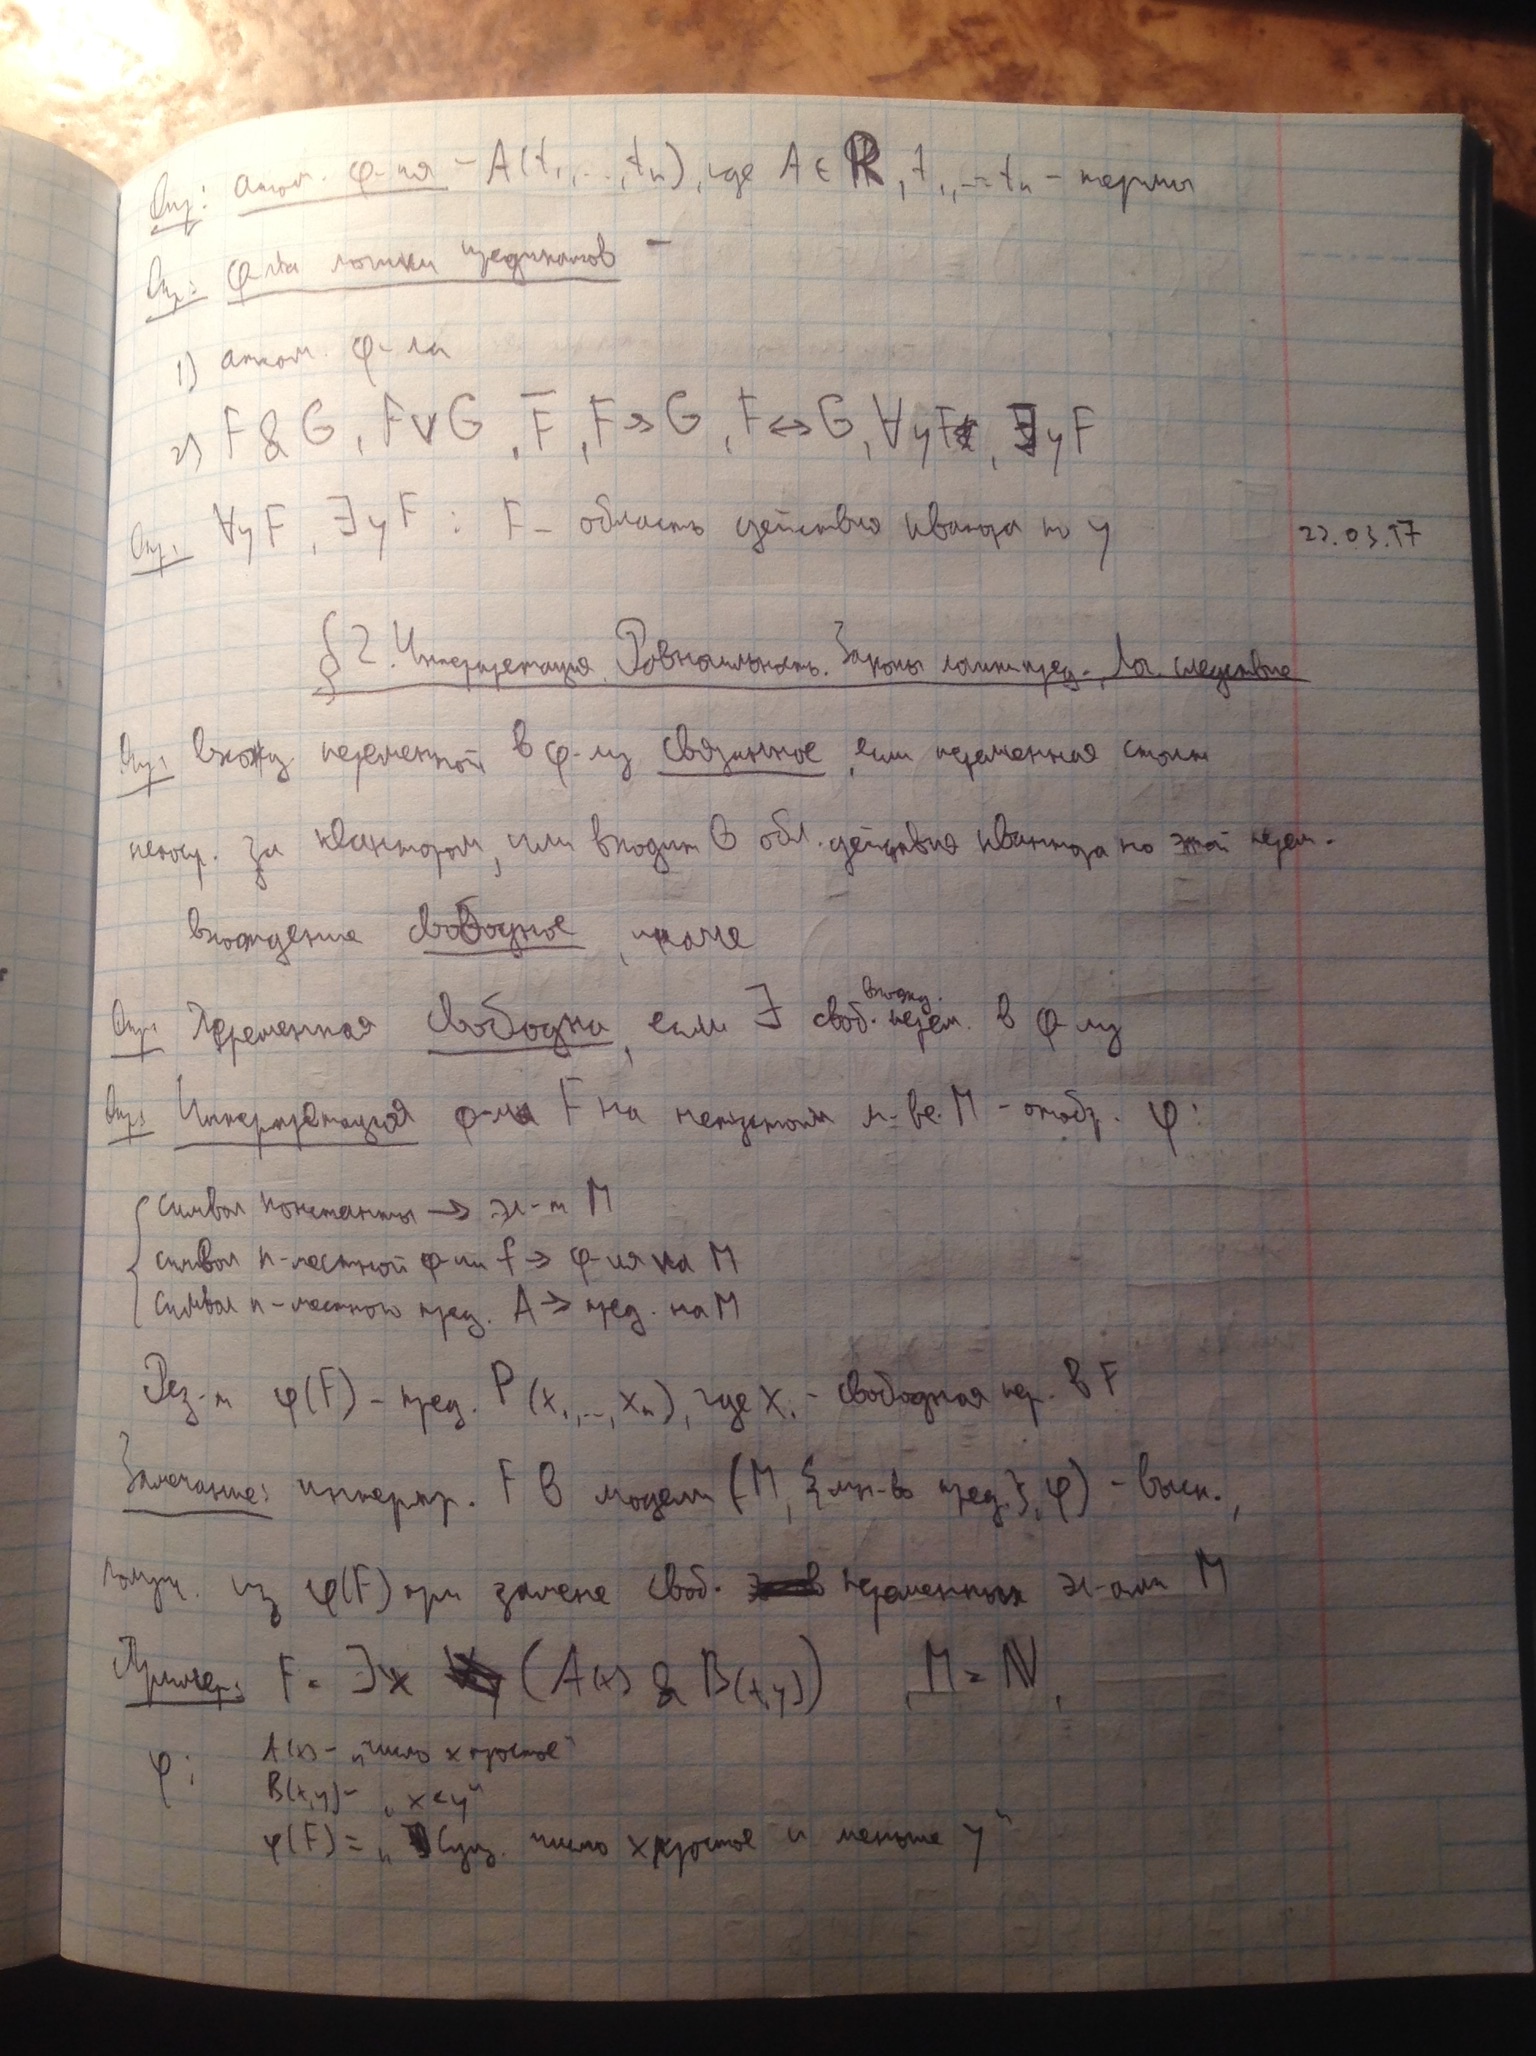 Опр: атом. ф-ля - A(t₁,...,tₙ), где A ∈ R, t₁,...tₙ - термы
Опр: ф-ла логики предикатов -
1) атом. ф-ла
2) F & G, F∨G, F̅, F→G, F↔G, ∀yF, ∃yF
Опр: ∀yF, ∃yF : F - область действия квантора по y
22.03.17
§2. Интерпретация. Равносильность. Законы логики пред. Лог. следствие
Опр: вхожд. переменной в ф-лу связанное, если переменная стоит
непоср. за квантором, или входит в обл. действия квантора по этой перем.
вхождение свободное, иначе
Опр: Переменная свободна, если ∃ своб. вхожд. перем. в ф-лу
Опр: Интерпретация ф-лы F на непустом м-ве M - отобр. φ:
символ константы → эл-т M
символ n-местной ф-ии f → ф-ия на M
символ n-местного пред. A → пред. на M
Рез-т φ(F) - пред. P(x₁,...,xₙ), где xᵢ - свободная пер. в F
Замечание: интерпр. F в модели (M, {мн-во пред.}, φ) - выск.,
получ. из φ(F) при замене своб. переменных эл-ами M
Пример: F = ∃x (A(x) & B(x,y)) , M = ℕ,
φ: A(x) - „число x простое"
B(x,y) - „x<y"
φ(F) = „Сущ. число x простое и меньше y"